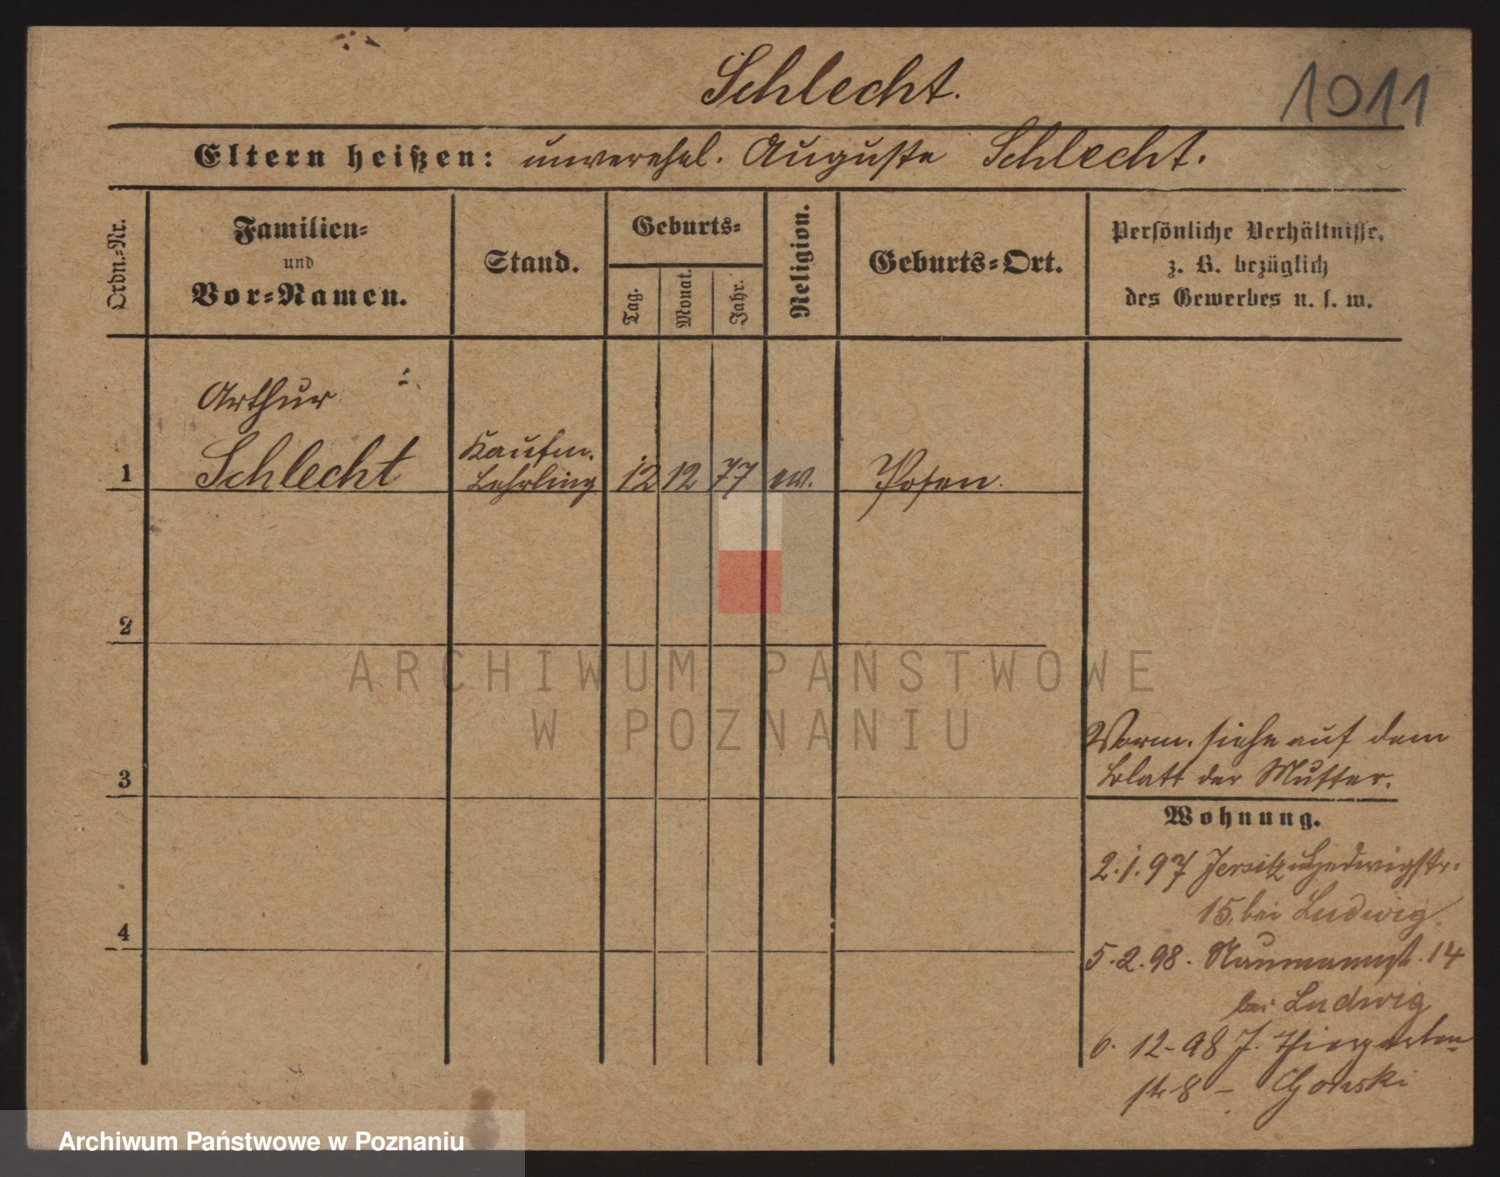 Schlecht.
1011
Eltern heißen: unverehel. Auguste Schlecht.
Ordn.-Nr.
Familien-
und
Vor-Namen.
Stand.
Geburts-
Tag.
Monat.
Jahr.
Religion.
Geburts-Ort.
Persönliche Verhältnisse,
z. B. bezüglich
des Gewerbes u. s. w.
Arthur
Schlecht
Kaufm.
Lehrling
1
12 12 77 ev. Posen.
2
ARCHIWUM PAŃSTWOWE
W POZNANIU
3
Vorm. siehe auf dem
Blatt der Mutter.
Wohnung.
2.1.97 Jersitz Hedwigstr.
15, bei Ludwig.
4
5.2.98. Naumannst. 14
bei Ludwig
6. 12-98 J. Thiergarten-
st. 8 - Gorski
Archiwum Państwowe w Poznaniu